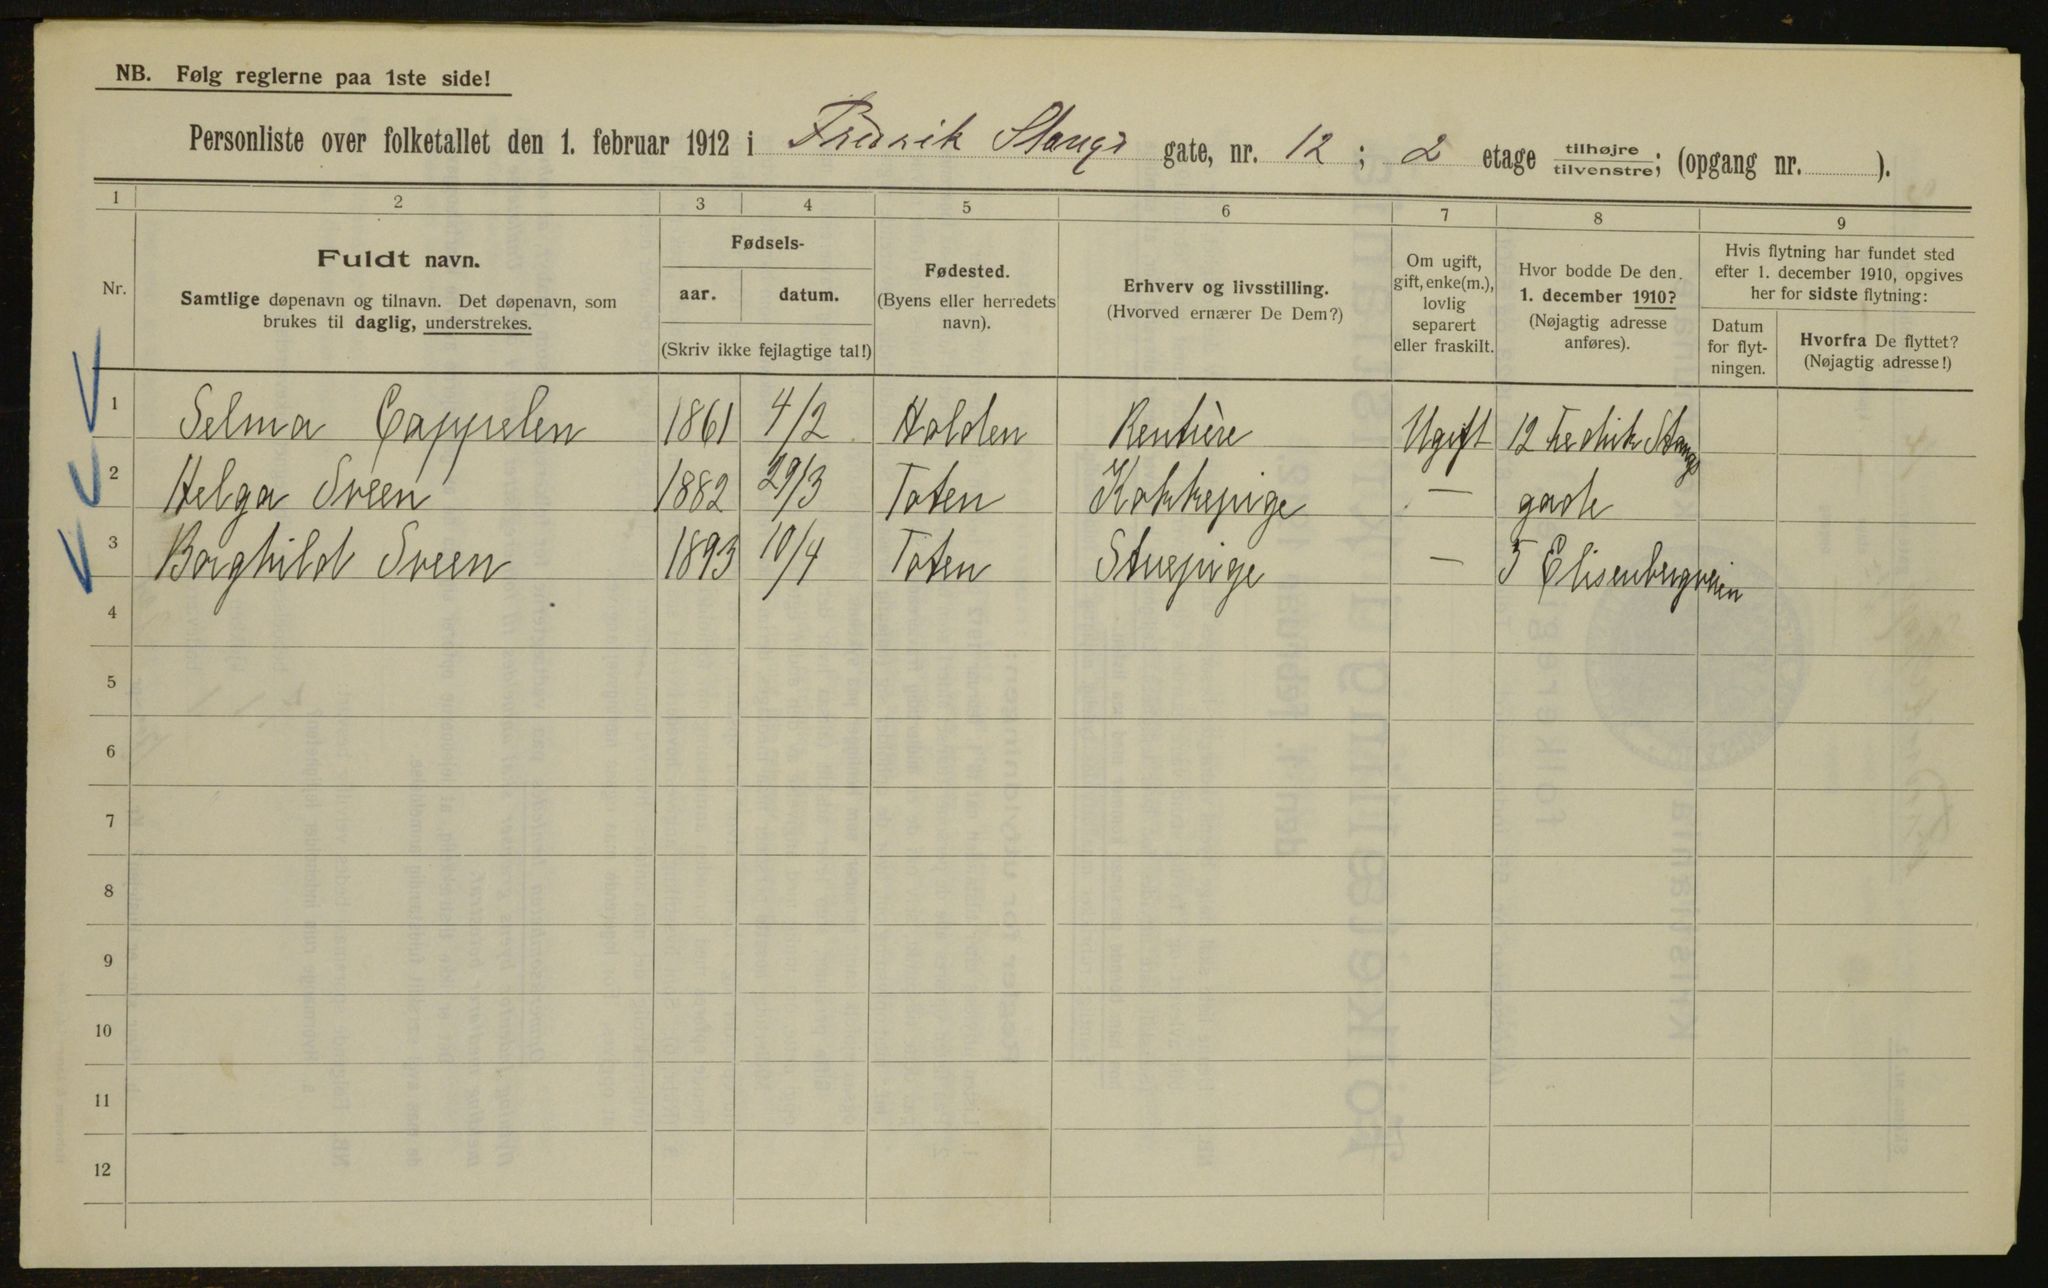 NB. Følg reglerne paa 1ste side!
Personliste over folketallet den 1. februar 1912 i Fredrik Stangs gate, nr. 12 ; 2 etage tilhøjre tilvenstre; (opgang nr. ).
1 2 3 4 5 6 7 8 9
Nr.
Fuldt navn.
Samtlige døpenavn og tilnavn. Det døpenavn, som
brukes til daglig, understrekes.
Fødsels-
aar. datum.
(Skriv ikke fejlagtige tal!)
Fødested.
(Byens eller herredets
navn).
Erhverv og livsstilling.
(Hvorved ernærer De Dem?)
Om ugift,
gift, enke(m.),
lovlig
separert
eller fraskilt.
Hvor bodde De den
1. december 1910?
(Nøjagtig adresse
anføres).
Hvis flytning har fundet sted
efter 1. december 1910, opgives
her for sidste flytning:
Datum
for flyt-
ningen.
Hvorfra De flyttet?
(Nøjagtig adresse!)
1 Selma Cappelen 1861 4/2 Holden Rentière Ugift 12 Fredrik Stangs
2 Helga Sveen 1882 29/3 Toten Kokkepige — gade
3 Borghild Sveen 1893 10/4 Toten Stuepige — 5 Elisenbergveien
4
5
6
7
8
9
10
11
12